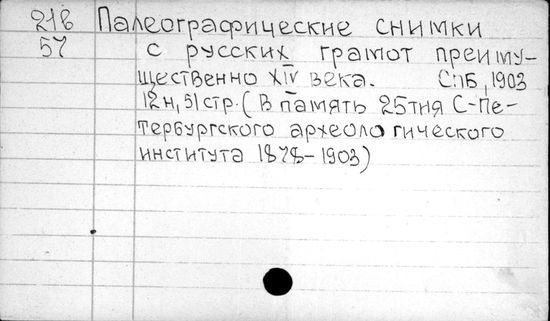 218 Палеографические снимки
57 с русских грамот преиму-
щественно XIV века. СПБ, 1903
12н, 51стр. (В память 25тия С-Пе-
тербургского археологического
института 1878-1903)